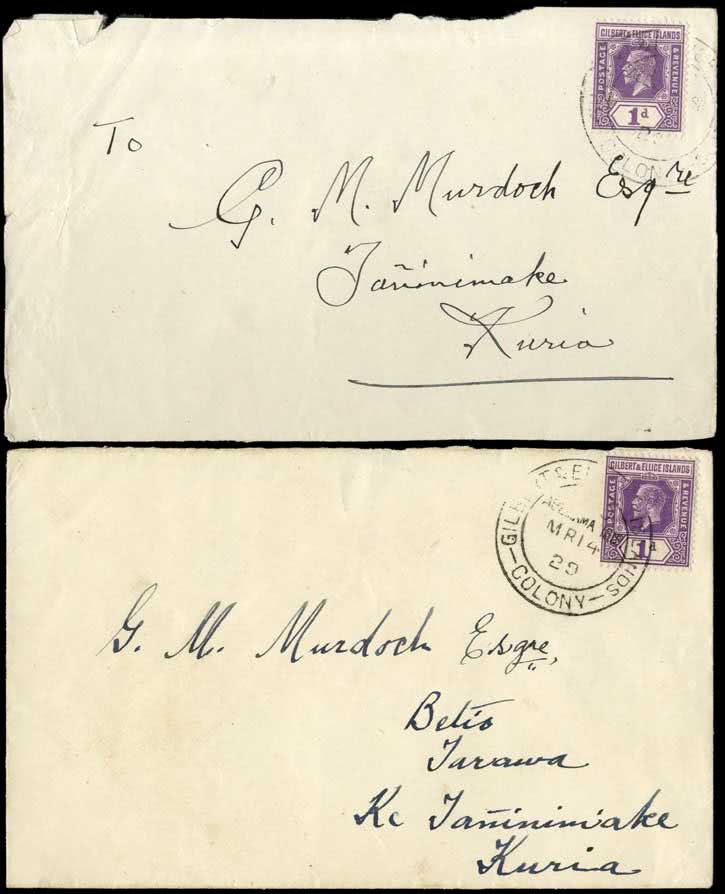 GILBERT & ELLICE ISLANDS
POSTAGE
& REVENUE
1d
COLONY
To
G. M. Murdoch Esqre
Tañinimake
Kuria
GILBERT & ELLICE ISLANDS
POSTAGE
& REVENUE
1d
MR 14
29
COLONY
G. M. Murdoch Esqre,
Betio
Tarawa
Ke Tañinimake
Kuria